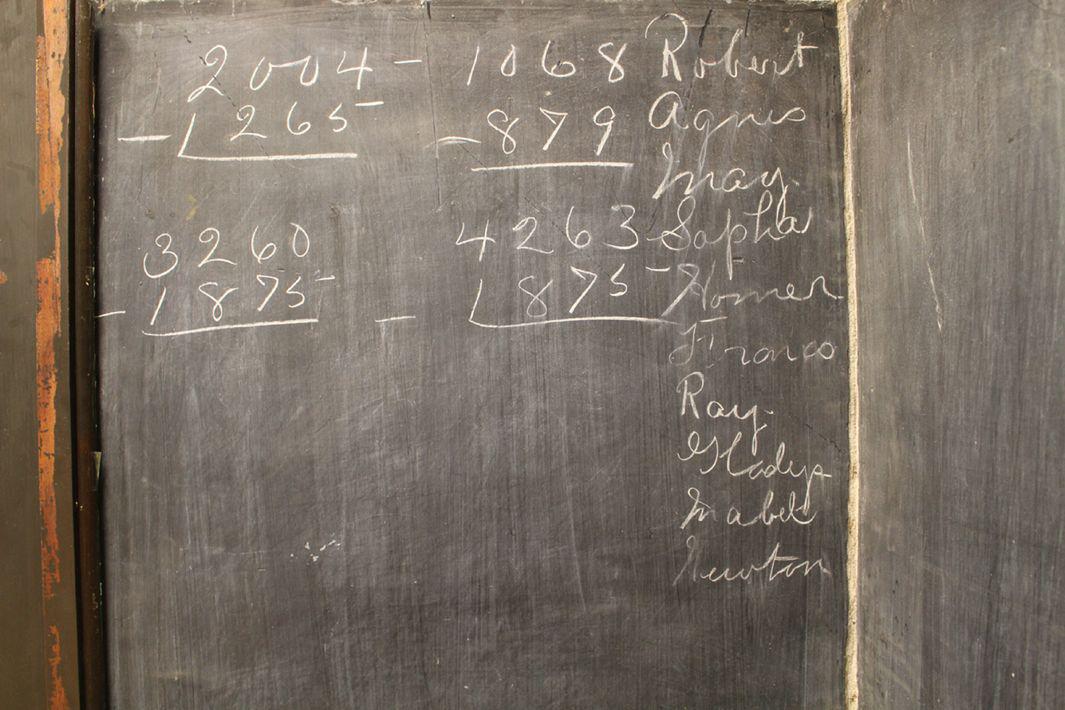 2004 - 1068 Robert
- 1265 - 879 Agnes
May
3260 4263 Sopha
- 1875 - 1875 Homer
Franco
Ray
Gladys
Mabel
Newton